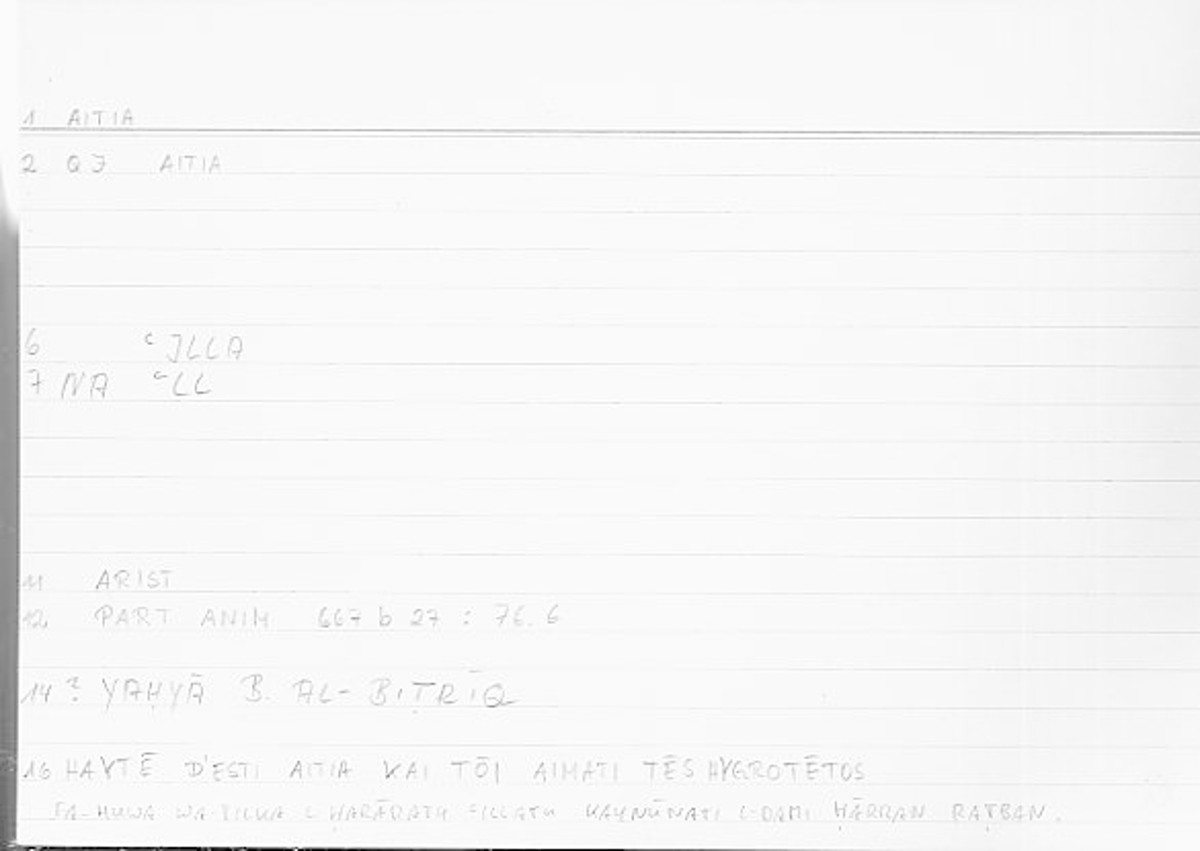 1 AITIA
2 QJ AITIA
6 ʿJLLA
7 NA ʿLL
11 ARIST
12 PART ANIM 667 b 27 : 76.6
14 ? YAḤYĀ B. AL-BIṬRĪQ
16 HAYTĒ D'ESTI AITIA KAI TŌI AIMATI TĒS HYGROTĒTOS
FA-HUWA WA-TILKA L-ḤARĀRATU ʿILLATU KAYNŪNATI L-DAMI ḤĀRRAN RAṬBAN.